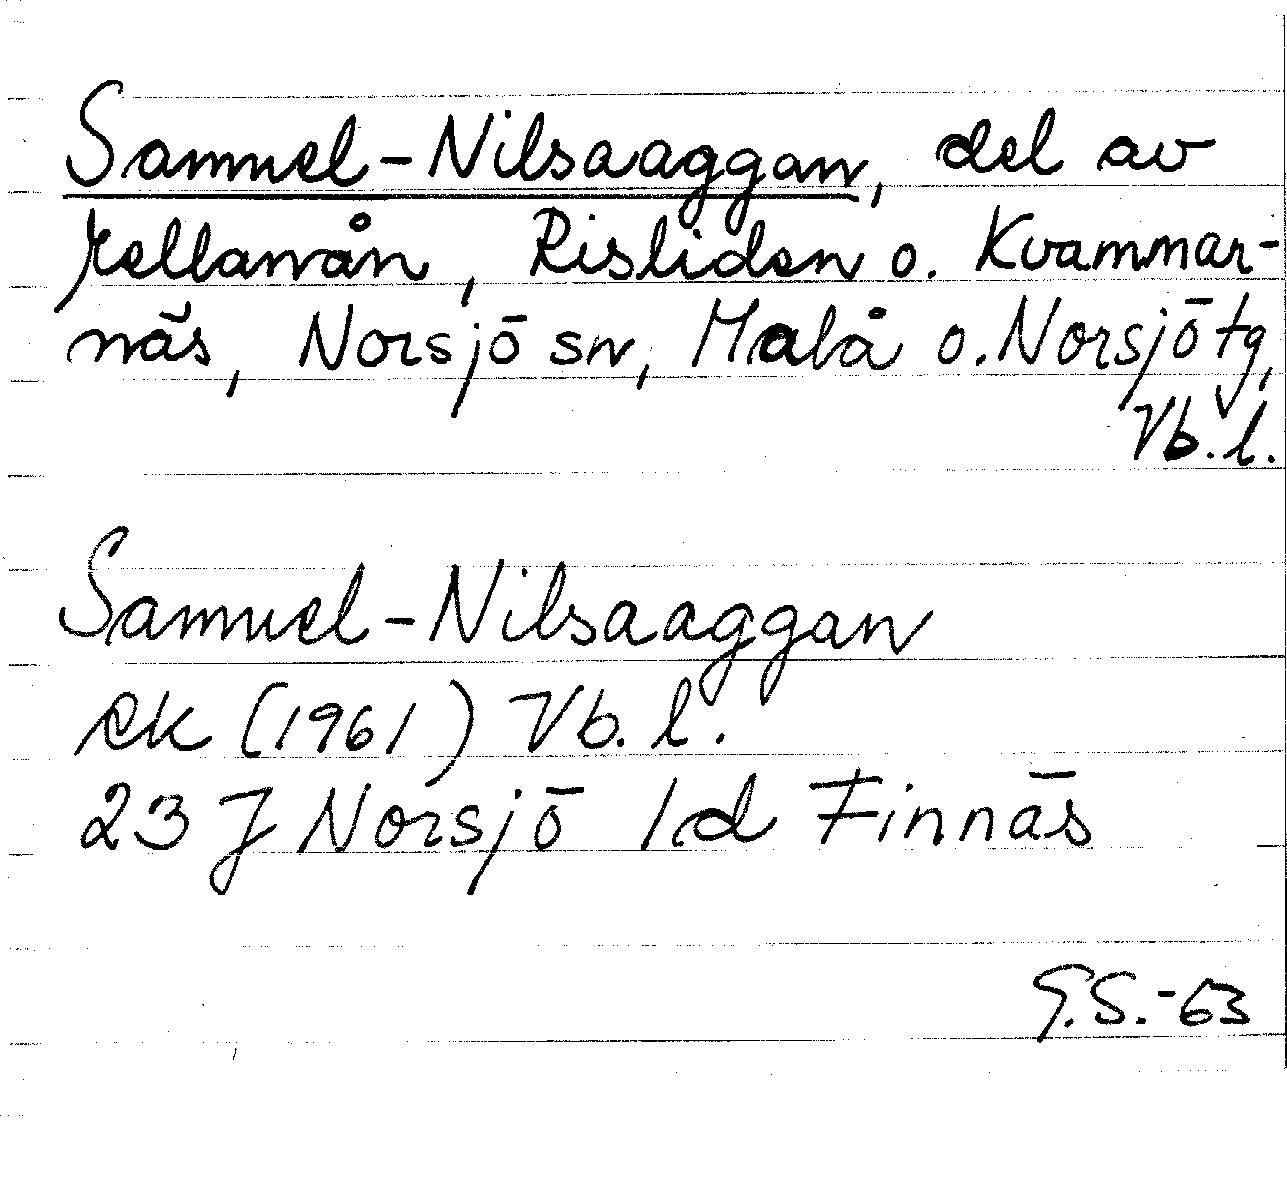 Samuel-Nilsaaggan, del av
Kellarån, Risliden o. Kvammar-
näs, Norsjö sn, Malå o. Norsjö tg,
Vb. l.
Samuel-Nilsaaggan
ek (1961) Vb. l.
23 J Norsjö 1d Finnäs
G.S.-63